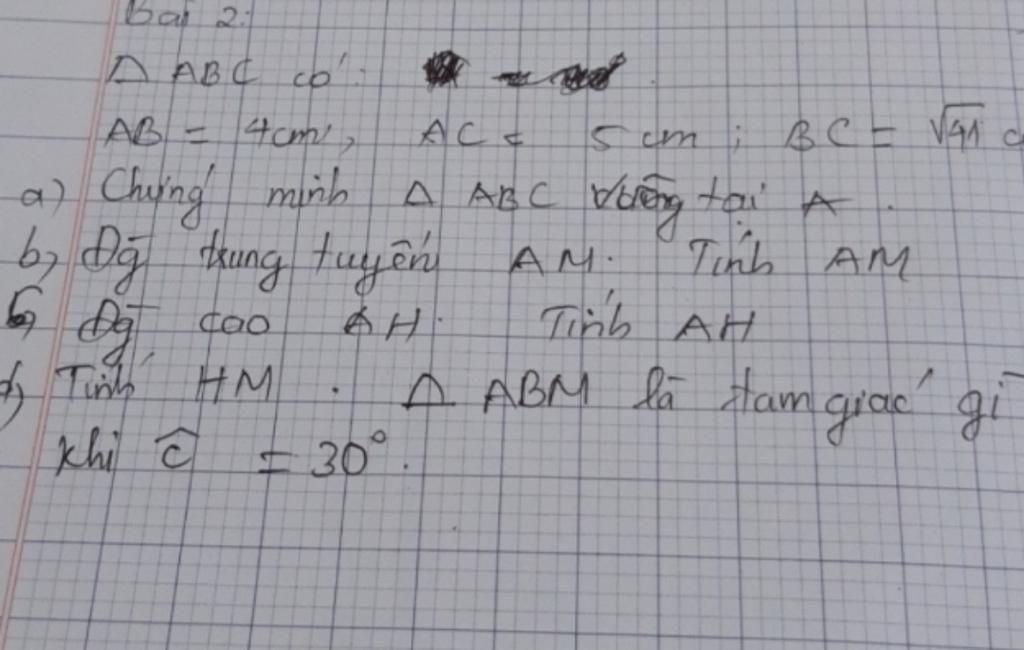 Bài 2:
Δ ABC có:
AB = 4cm, AC = 5 cm ; BC = √41 c
a) Chứng minh Δ ABC vuông tại A.
b) Đg trung tuyến AM. Tính AM
c) Đg cao AH. Tính AH
d) Tính HM. Δ ABM là tam giác gì
khi Ĉ = 30°.